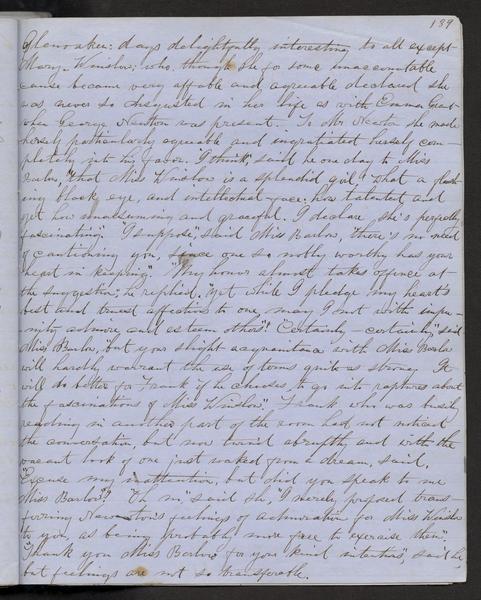 139
Glenoaken: days delightfully interesting to all except
Mary Winslow; who, though she for some unaccountable
cause became very affable and agreeable declared she
was never so disgusted in her life as with Emma Grant
when George Newton was present. To Mr. Newton she made
herself particularly agreeable and ingratiated herself com-
pletely into his favor. "I think," said he one day to Miss
Barlow, "that Miss Winslow is a splendid girl! What a flash-
ing black eye, and intellectual face; how talented and
yet how unassuming and graceful. I declare she's perfectly
fascinating." "I suppose," said Miss Barlow, "there's no need
of cautioning you, since one so nobly worthy has your
heart in keeping." "My honor almost takes offence at
the suggestion," he replied, "yet while I pledge my heart's
best and truest affections to one may I not with impu-
nity admire and esteem others? Certainly – certainly," said
Miss Barlow, "but your short acquaintance with Miss
will hardly warrant the use of terms quite so strong. It
will do better for Frank if he chooses, to go into raptures about
the fascinations of Miss Winslow." Frank who was busily
reading in another part of the room had not noticed
the conversation, but now turned abruptly and with the
vacant look of one just waked from a dream, said,
"Excuse my inattention, but did you speak to me
Miss Barlow?" "Oh no," said she, "I merely proposed trans-
ferring Newton's feelings of admiration for Miss Winslow
to you, as being probably more free to exercise them".
"Thank you Miss Barlow for your kind intention," said he,
but feelings are not so transferable.